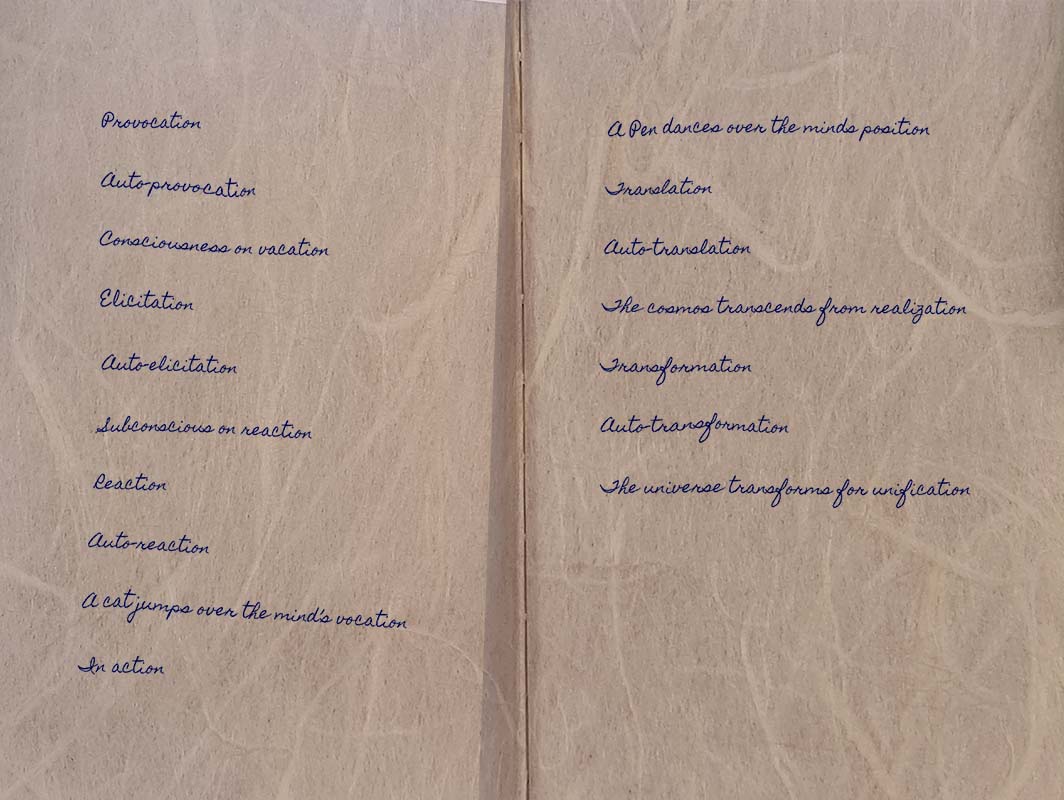 Provocation
Auto-provocation
Consciousness on vacation
Elicitation
Auto-elicitation
Subconscious on reaction
Reaction
Auto-reaction
A cat jumps over the mind's vocation
In action
A Pen dances over the minds position
Translation
Auto-translation
The cosmos transcends from realization
Transformation
Auto-transformation
The universe transforms for unification